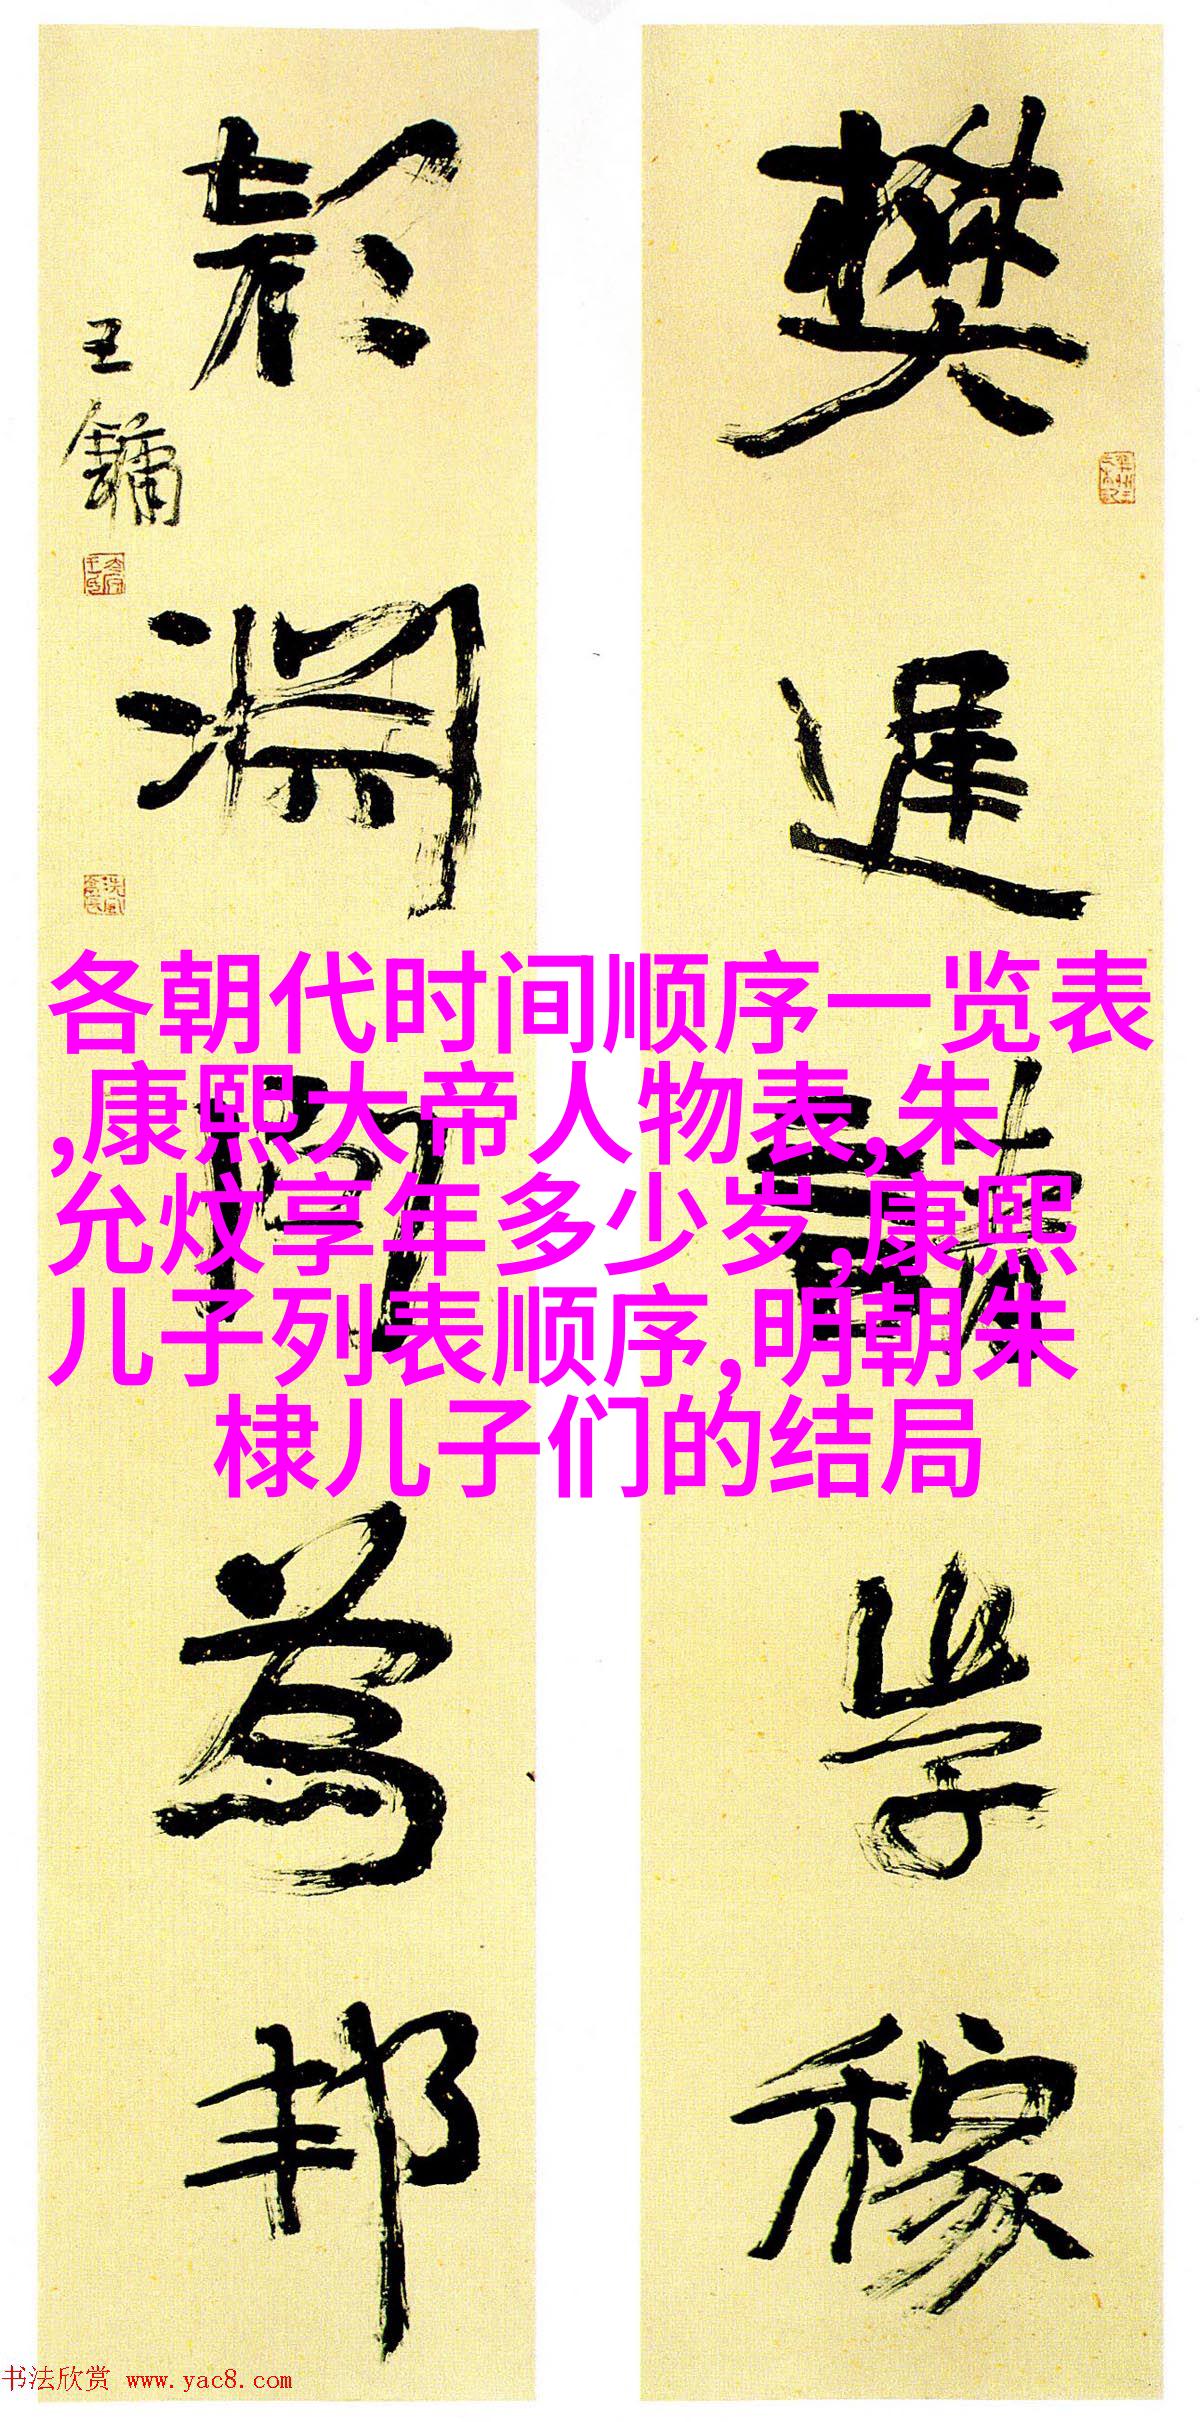 樊遲請學稼
顏淵問為邦
王鏞
各朝代时间顺序一览表
,康熙大帝人物表,朱
允炆享年多少岁,康熙
儿子列表顺序,明朝朱
棣儿子们的结局
书法欣赏 www.yac8.com